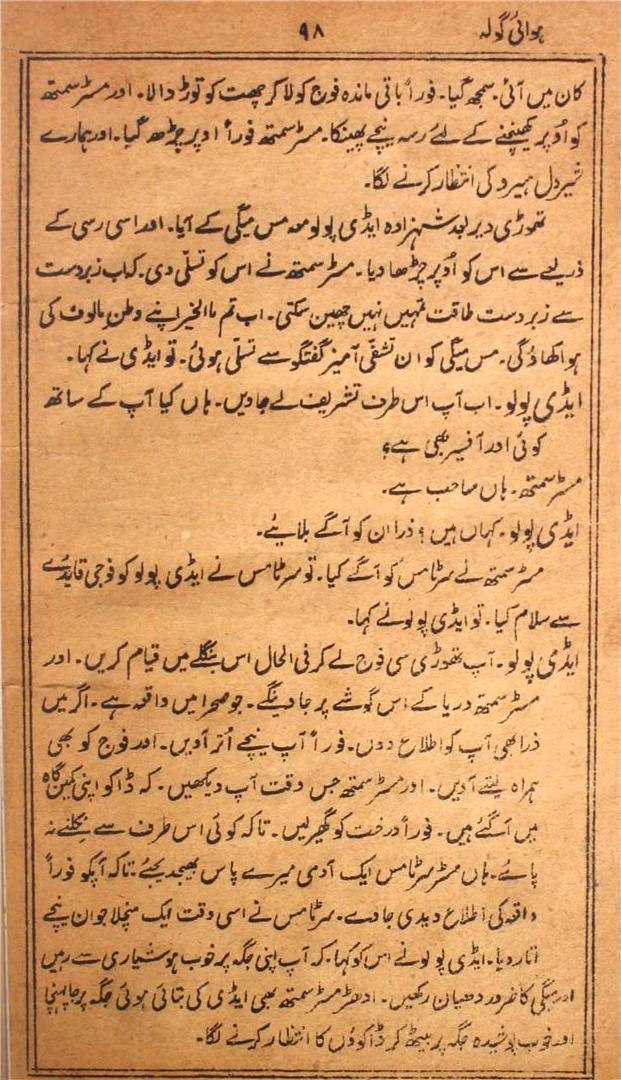 ہوائی گولہ ۹۸
کان میں آئی۔ سمجھ گیا۔ فوراً باقی ماندہ فوج کو لا کر چھت کو توڑ ڈالا۔ اور مسٹر سمتھ
کو اُوپر کھینچنے کے لئے رسہ نیچے پھینکا۔ مسٹر سمتھ فوراً اوپر چڑھ گیا۔ اور ہمارے
شیر دل ہیرو کی انتظار کرنے لگا۔
تھوڑی دیر بعد شہزادہ ایڈی پولو معہ مس میگی کے آیا۔ اور اسی رسی کے
ذریعے سے اس کو اُوپر چڑھا دیا۔ مسٹر سمتھ نے اس کو تسلّی دی۔ کہ اب زبردست
سے زبردست طاقت تمہیں نہیں چھین سکتی۔ اب تم با الخیر اپنے وطن مالوف کی
ہوا کھاؤ گی۔ مس میگی کو ان تشفّی آمیز گفتگو سے تسلی ہوئی۔ تو ایڈی نے کہا۔
ایڈی پولو۔ اب آپ اس طرف تشریف لے جاویں۔ ہاں کیا آپ کے ساتھ
کوئی اور آفیسر بھی ہے؟
مسٹر سمتھ۔ ہاں صاحب ہے۔
ایڈی پولو۔ کہاں ہیں؟ ذرا ان کو آگے بلایئے۔
مسٹر سمتھ نے سرٹامس کو آگے کیا۔ تو سرٹامس نے ایڈی پولو کو فوجی قایدے
سے سلام کیا۔ تو ایڈی پولو نے کہا۔
ایڈی پولو۔ آپ تھوڑی سی فوج لے کر فی الحال اس بنگلے میں قیام کریں۔ اور
مسٹر سمتھ دریا کے اس گوشے پر جاوینگے۔ جو صحرا میں واقعہ ہے۔ اگر میں
ذرا بھی آپ کو اطلاع دوں۔ فوراً آپ نیچے اُتر آویں۔ اور فوج کو بھی
ہمراہ لیتے آویں۔ اور مسٹر سمتھ جس وقت آپ دیکھیں۔ کہ ڈاکو اپنی کمین گاہ
میں آ گئے ہیں۔ فوراً درخت کو گھیر لیں۔ تاکہ کوئی اس طرف سے نکلنے نہ
پائے۔ ہاں مسٹر سرٹامس ایک آدمی میرے پاس بھیجدیجئے۔ تاکہ آپکو فوراً
واقعہ کی اطلاع دیدی جاوے۔ سرٹامس نے اسی وقت ایک منچلا جوان نیچے
اتار دیا۔ ایڈی پولو نے اس کو کہا۔ کہ آپ اپنی جگہ پر خوب ہوشیاری سے رہیں
اور میگی کا ضرور دھیان رکھیں۔ ادھر مسٹر سمتھ بھی ایڈی کی بتائی ہوئی جگہ پر جا پہنچا
اور خوب پوشیدہ جگہ پر بیٹھ کر ڈاکوؤں کا انتظار کرنے لگا۔